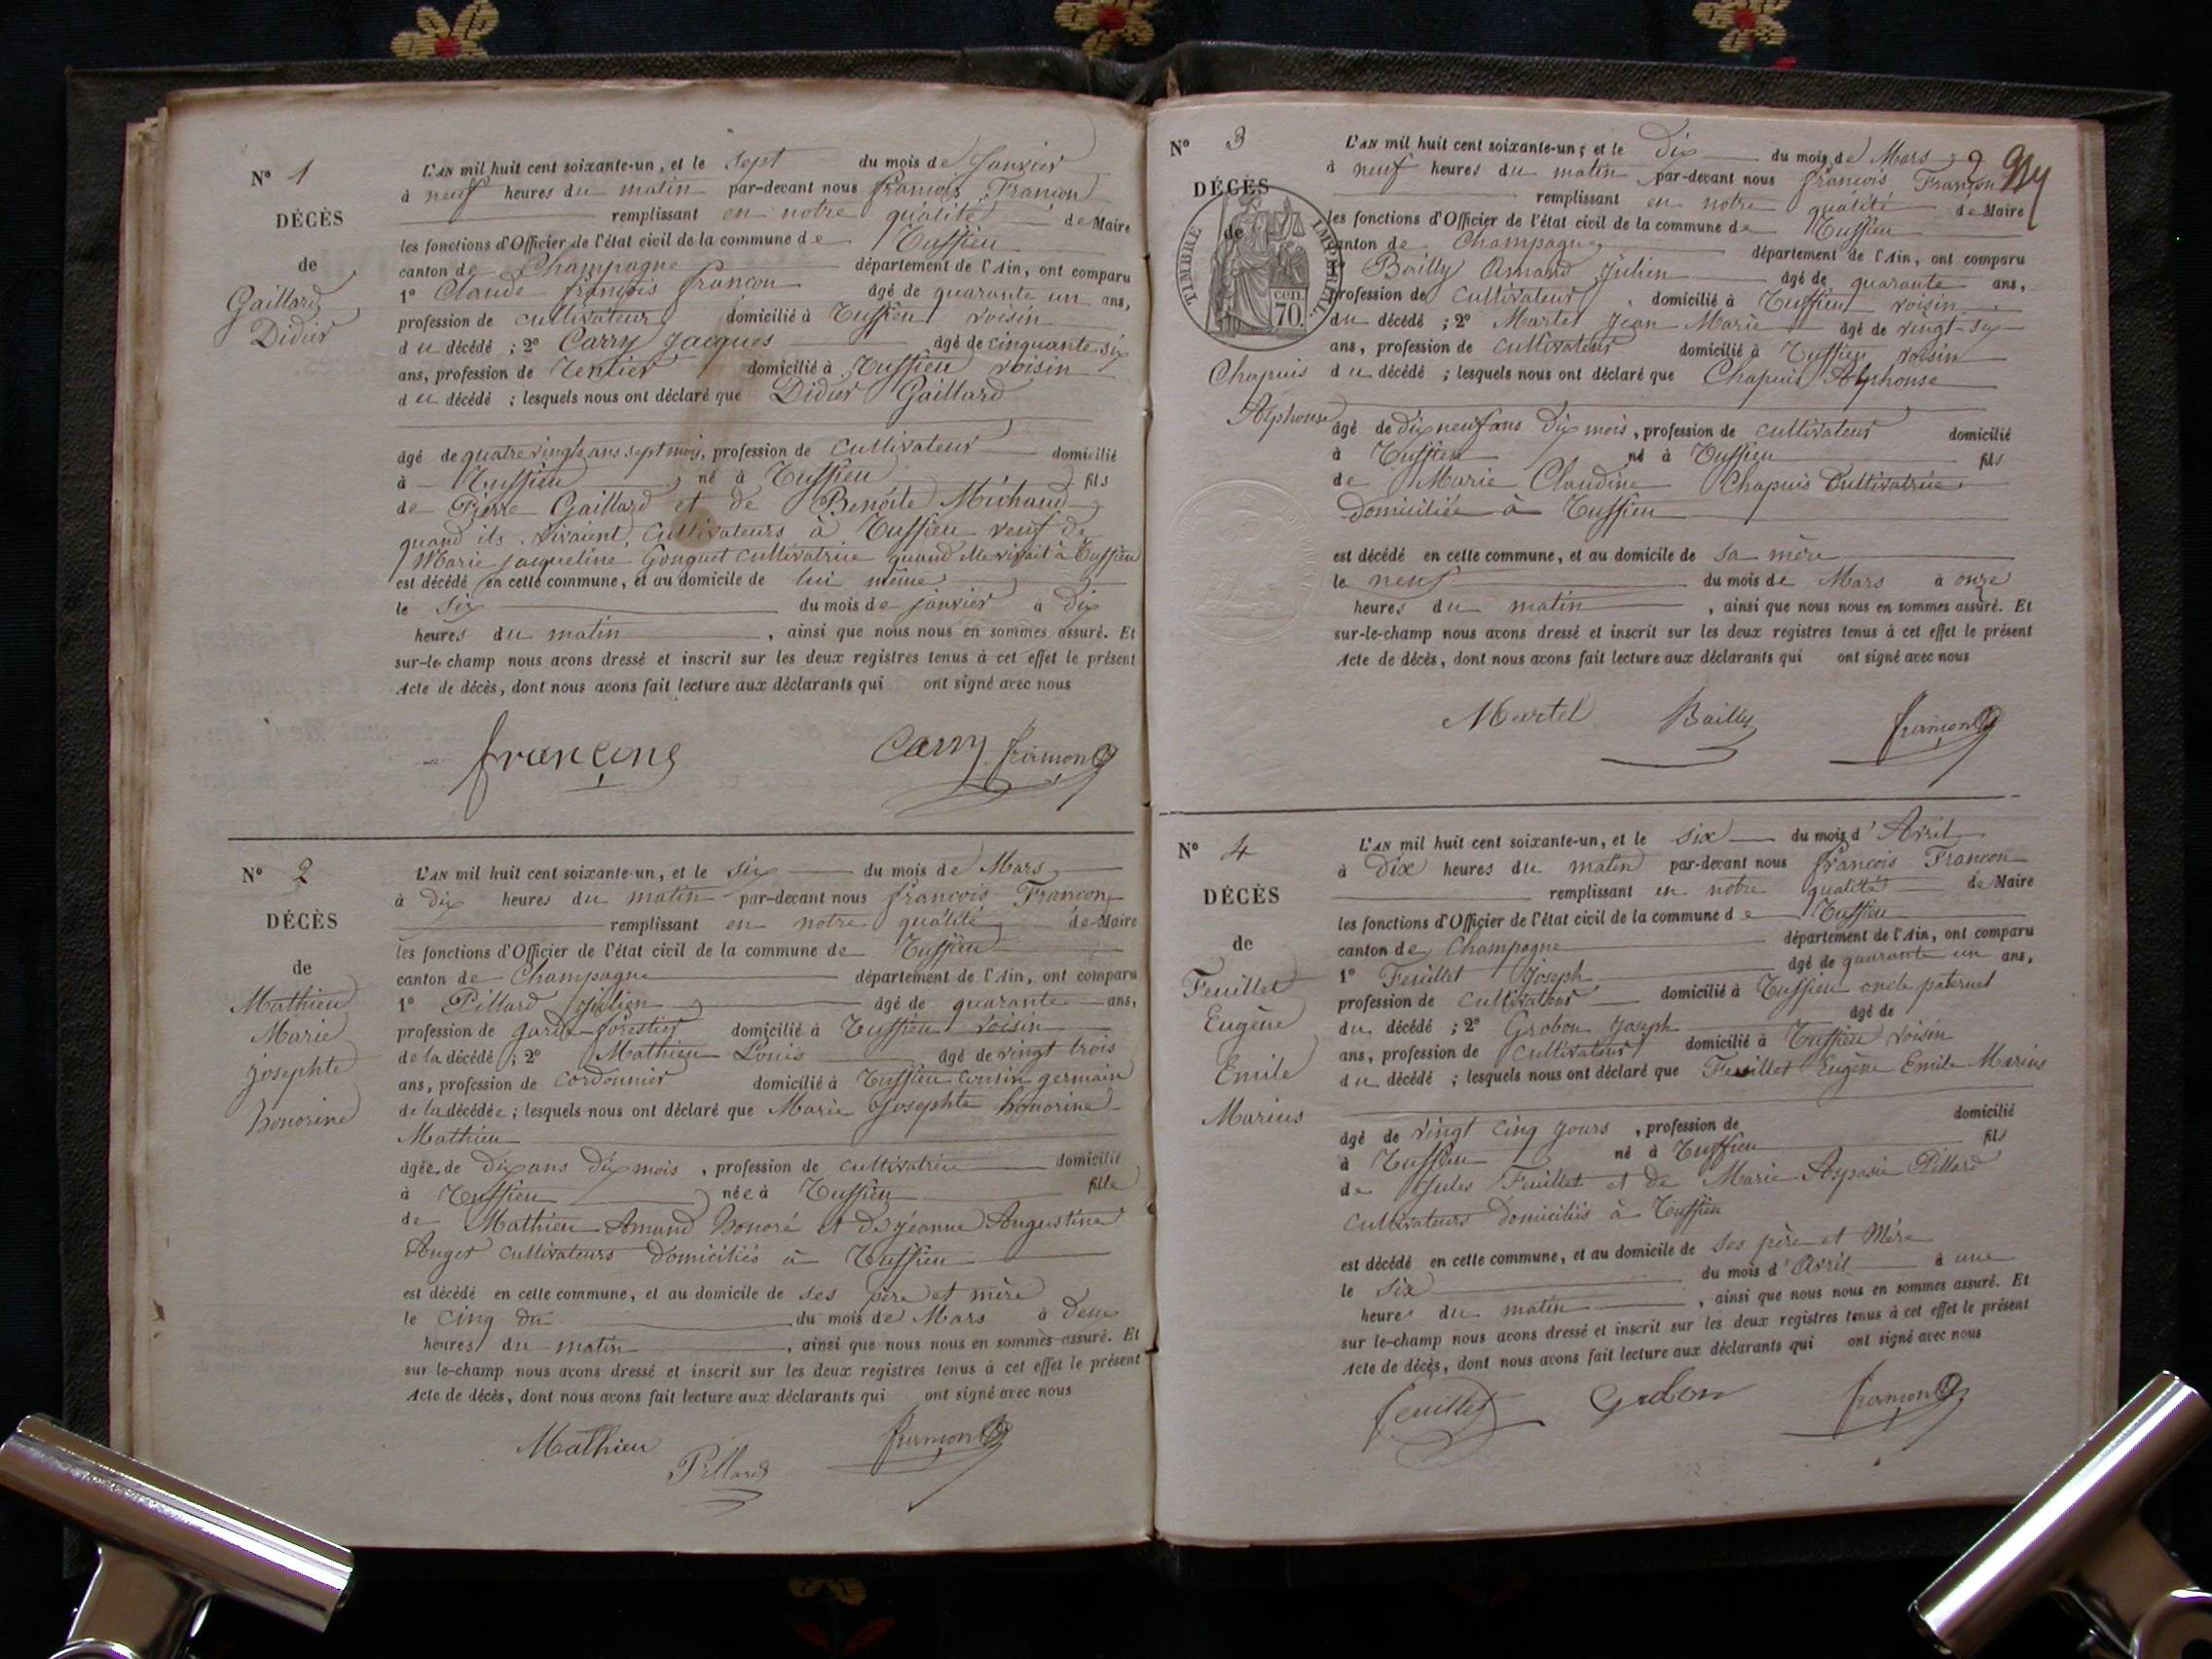 N° 1
DÉCÈS
de
Gaillard
Didier
L'AN mil huit cent soixante-un, et le sept du mois de Janvier
à neuf heures du matin par-devant nous françois Françon
remplissant en notre qualité de Maire
les fonctions d'Officier de l'état civil de la commune de Tussieu
canton de Champagne département de l'Ain, ont comparu
1° Claude françois françon âgé de quarante un ans,
profession de cultivateur domicilié à Tussieu voisin
du décédé ; 2° Carry Jacques âgé de cinquante six
ans, profession de Rentier domicilié à Tussieu voisin
du décédé ; lesquels nous ont déclaré que Didier Gaillard
âgé de quatre vingts ans sept mois, profession de cultivateur domicilié
à Tussieu né à Tussieu fils
de Pierre Gaillard et de Benoîte Michaud
quand ils vivaient cultivateurs à Tussieu veuf de
Marie jacqueline Gonguet cultivatrice quand elle vivait à Tussieu
est décédé en cette commune, et au domicile de lui même
le six du mois de janvier à dix
heures du matin, ainsi que nous nous en sommes assuré. Et
sur-le-champ nous avons dressé et inscrit sur les deux registres tenus à cet effet le présent
Acte de décès, dont nous avons fait lecture aux déclarants qui ont signé avec nous
françong Carry françon
N° 2
DÉCÈS
de
Mathieu
Marie
josephte
honorine
L'AN mil huit cent soixante-un, et le six du mois de Mars
à dix heures du matin par-devant nous françois Françon
remplissant en notre qualité de Maire
les fonctions d'Officier de l'état civil de la commune de Tussieu
canton de Champagne département de l'Ain, ont comparu
1° Pillard Julien âgé de quarante ans,
profession de garde-forestier domicilié à Tussieu voisin
de la décédé ; 2° Mathieu Louis âgé de vingt trois
ans, profession de cordonnier domicilié à Tussieu cousin germain
de la décédée ; lesquels nous ont déclaré que Marie Josephte honorine
Mathieu
âgée de Dix ans dix mois, profession de cultivatrice domicilié
à Tussieu née à Tussieu fille
de Mathieu Amand honoré et de jeanne Augustine
Auger cultivateurs domiciliés à Tussieu
est décédé en cette commune, et au domicile de ses père et mère
le cinq du du mois de Mars à deux
heures du matin, ainsi que nous nous en sommes assuré. Et
sur le-champ nous avons dressé et inscrit sur les deux registres tenus à cet effet le présent
Acte de décès, dont nous avons fait lecture aux déclarants qui ont signé avec nous
Mathieu Pillard françon
N° 3
DÉCÈS
de
TIMBRE IMPÉRIAL
70 cen
Chapuis
Alphonse
2
L'AN mil huit cent soixante-un, et le Dix du mois de Mars
à neuf heures du matin par-devant nous françois Françon
remplissant en notre qualité de Maire
les fonctions d'Officier de l'état civil de la commune de Tussieu
canton de Champagne département de l'Ain, ont comparu
1° Bailly Amand Julien âgé de quarante ans,
profession de cultivateur, domicilié à Tussieu voisin
du décédé ; 2° Martel Jean Marie âgé de vingt-six
ans, profession de cultivateur domicilié à Tussieu voisin
du décédé ; lesquels nous ont déclaré que Chapuis Alphonse
âgé de dix neuf ans Dix mois, profession de cultivateur domicilié
à Tussieu né à Tussieu fils
de Marie Claudine Chapuis Cultivatrice
domiciliée à Tussieu
est décédé en cette commune, et au domicile de sa mère
le neuf du mois de Mars à onze
heures du matin, ainsi que nous nous en sommes assuré. Et
sur-le-champ nous avons dressé et inscrit sur les deux registres tenus à cet effet le présent
Acte de décès, dont nous avons fait lecture aux déclarants qui ont signé avec nous
Martel Bailly françon
N° 4
DÉCÈS
de
Feuillet
Eugène
Emile
Marius
L'AN mil huit cent soixante-un, et le six du mois d'Avril
à Dix heures du matin par-devant nous françois Françon
remplissant en notre qualité de Maire
les fonctions d'Officier de l'état civil de la commune de Tussieu
canton de Champagne département de l'Ain, ont comparu
1° Feuillet Joseph âgé de quarante un ans,
profession de cultivateur domicilié à Tussieu oncle paternel
du décédé ; 2° Grobon Joseph âgé de
ans, profession de cultivateur domicilié à Tussieu voisin
du décédé ; lesquels nous ont déclaré que Feuillet Eugène Emile Marius
âgé de vingt cinq jours, profession de domicilié
à Tussieu né à Tussieu fils
de Jules Feuillet et de Marie Aspasie Pillard
cultivateurs domiciliés à Tussieu
est décédé en cette commune, et au domicile de ses père et Mère
le six du mois d'Avril à une
heures du matin, ainsi que nous nous en sommes assuré. Et
sur le-champ nous avons dressé et inscrit sur les deux registres tenus à cet effet le présent
Acte de décès, dont nous avons fait lecture aux déclarants qui ont signé avec nous
feuillet Grobon françon